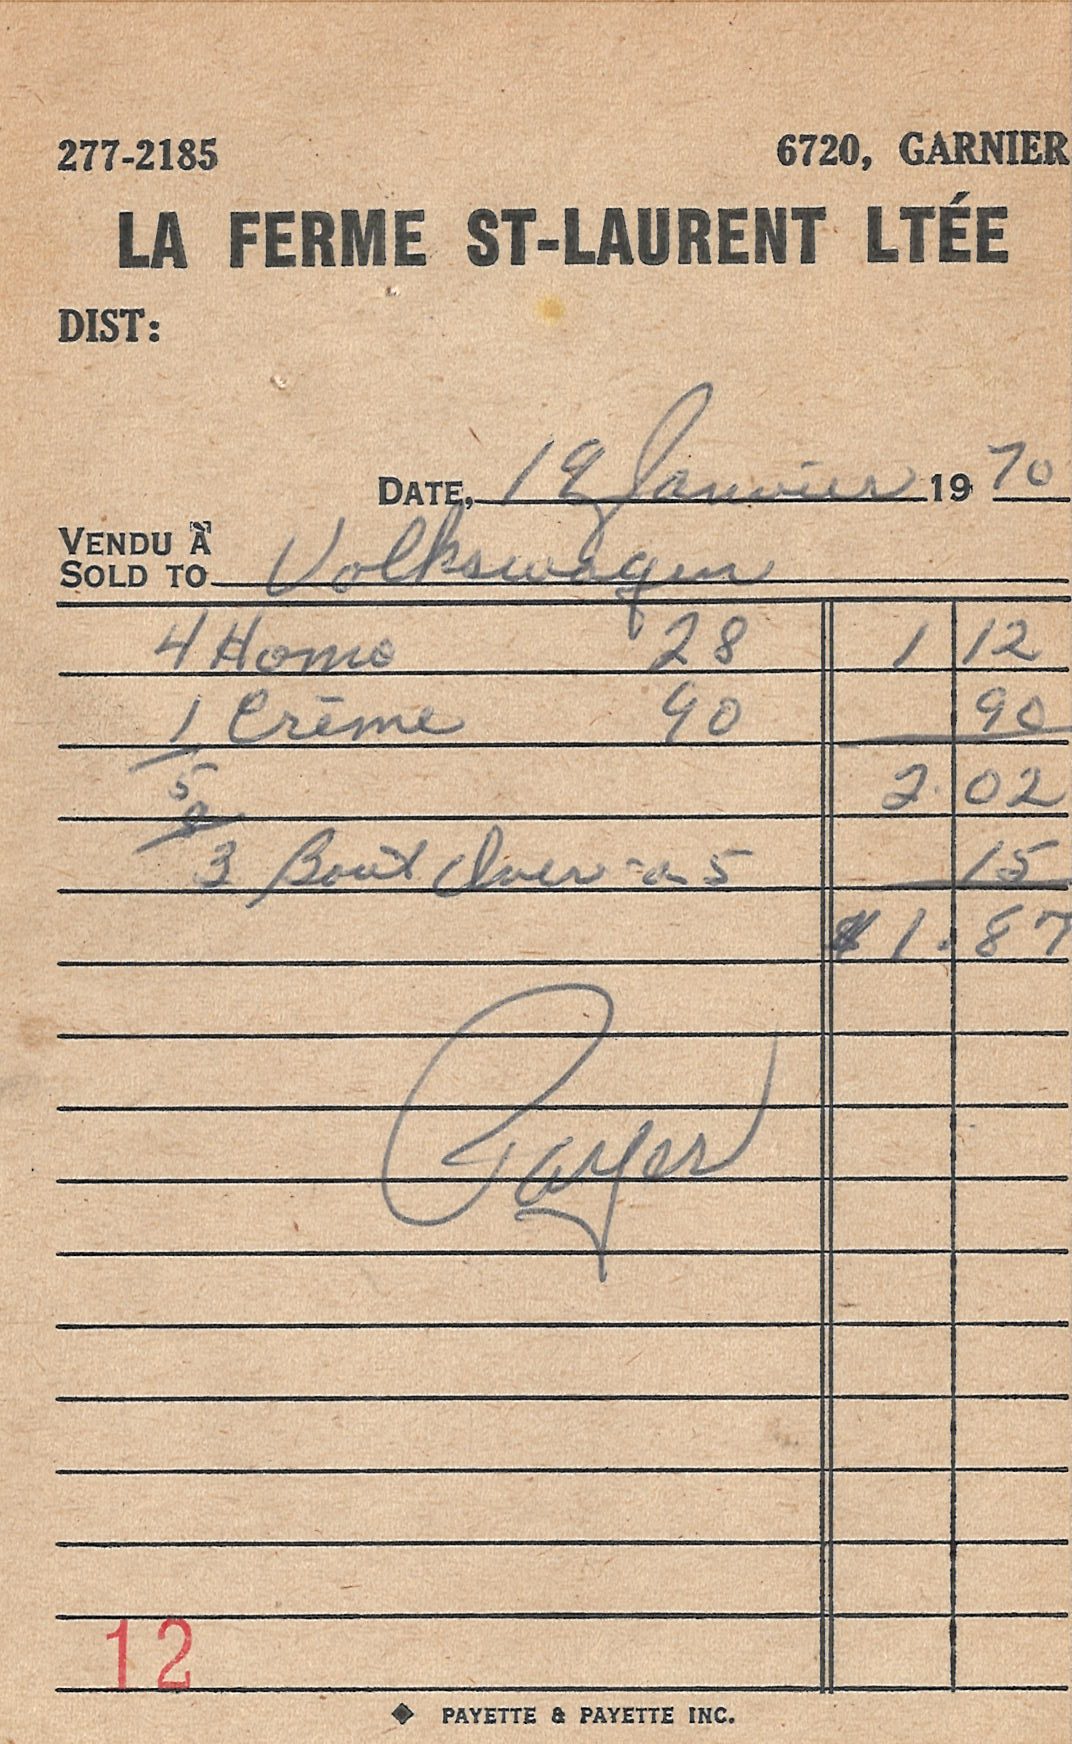 277-2185 6720, GARNIER
LA FERME ST-LAURENT LTÉE
DIST:
DATE, 19 Janvier 19 70
VENDU À
SOLD TO Volkswagen
4 Homo 28 1 12
1 Crème 90 90
5 2.02
3 Bout 5 15
$1.87
Payer
12
PAYETTE & PAYETTE INC.